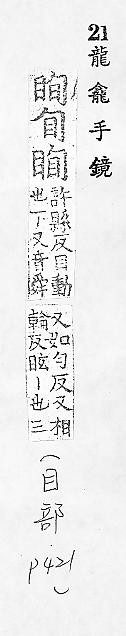 21 龍龕手鏡
眴
許縣反目動
也下又音舜
又如勻反又相
反眩丨也三
(目部 P421)